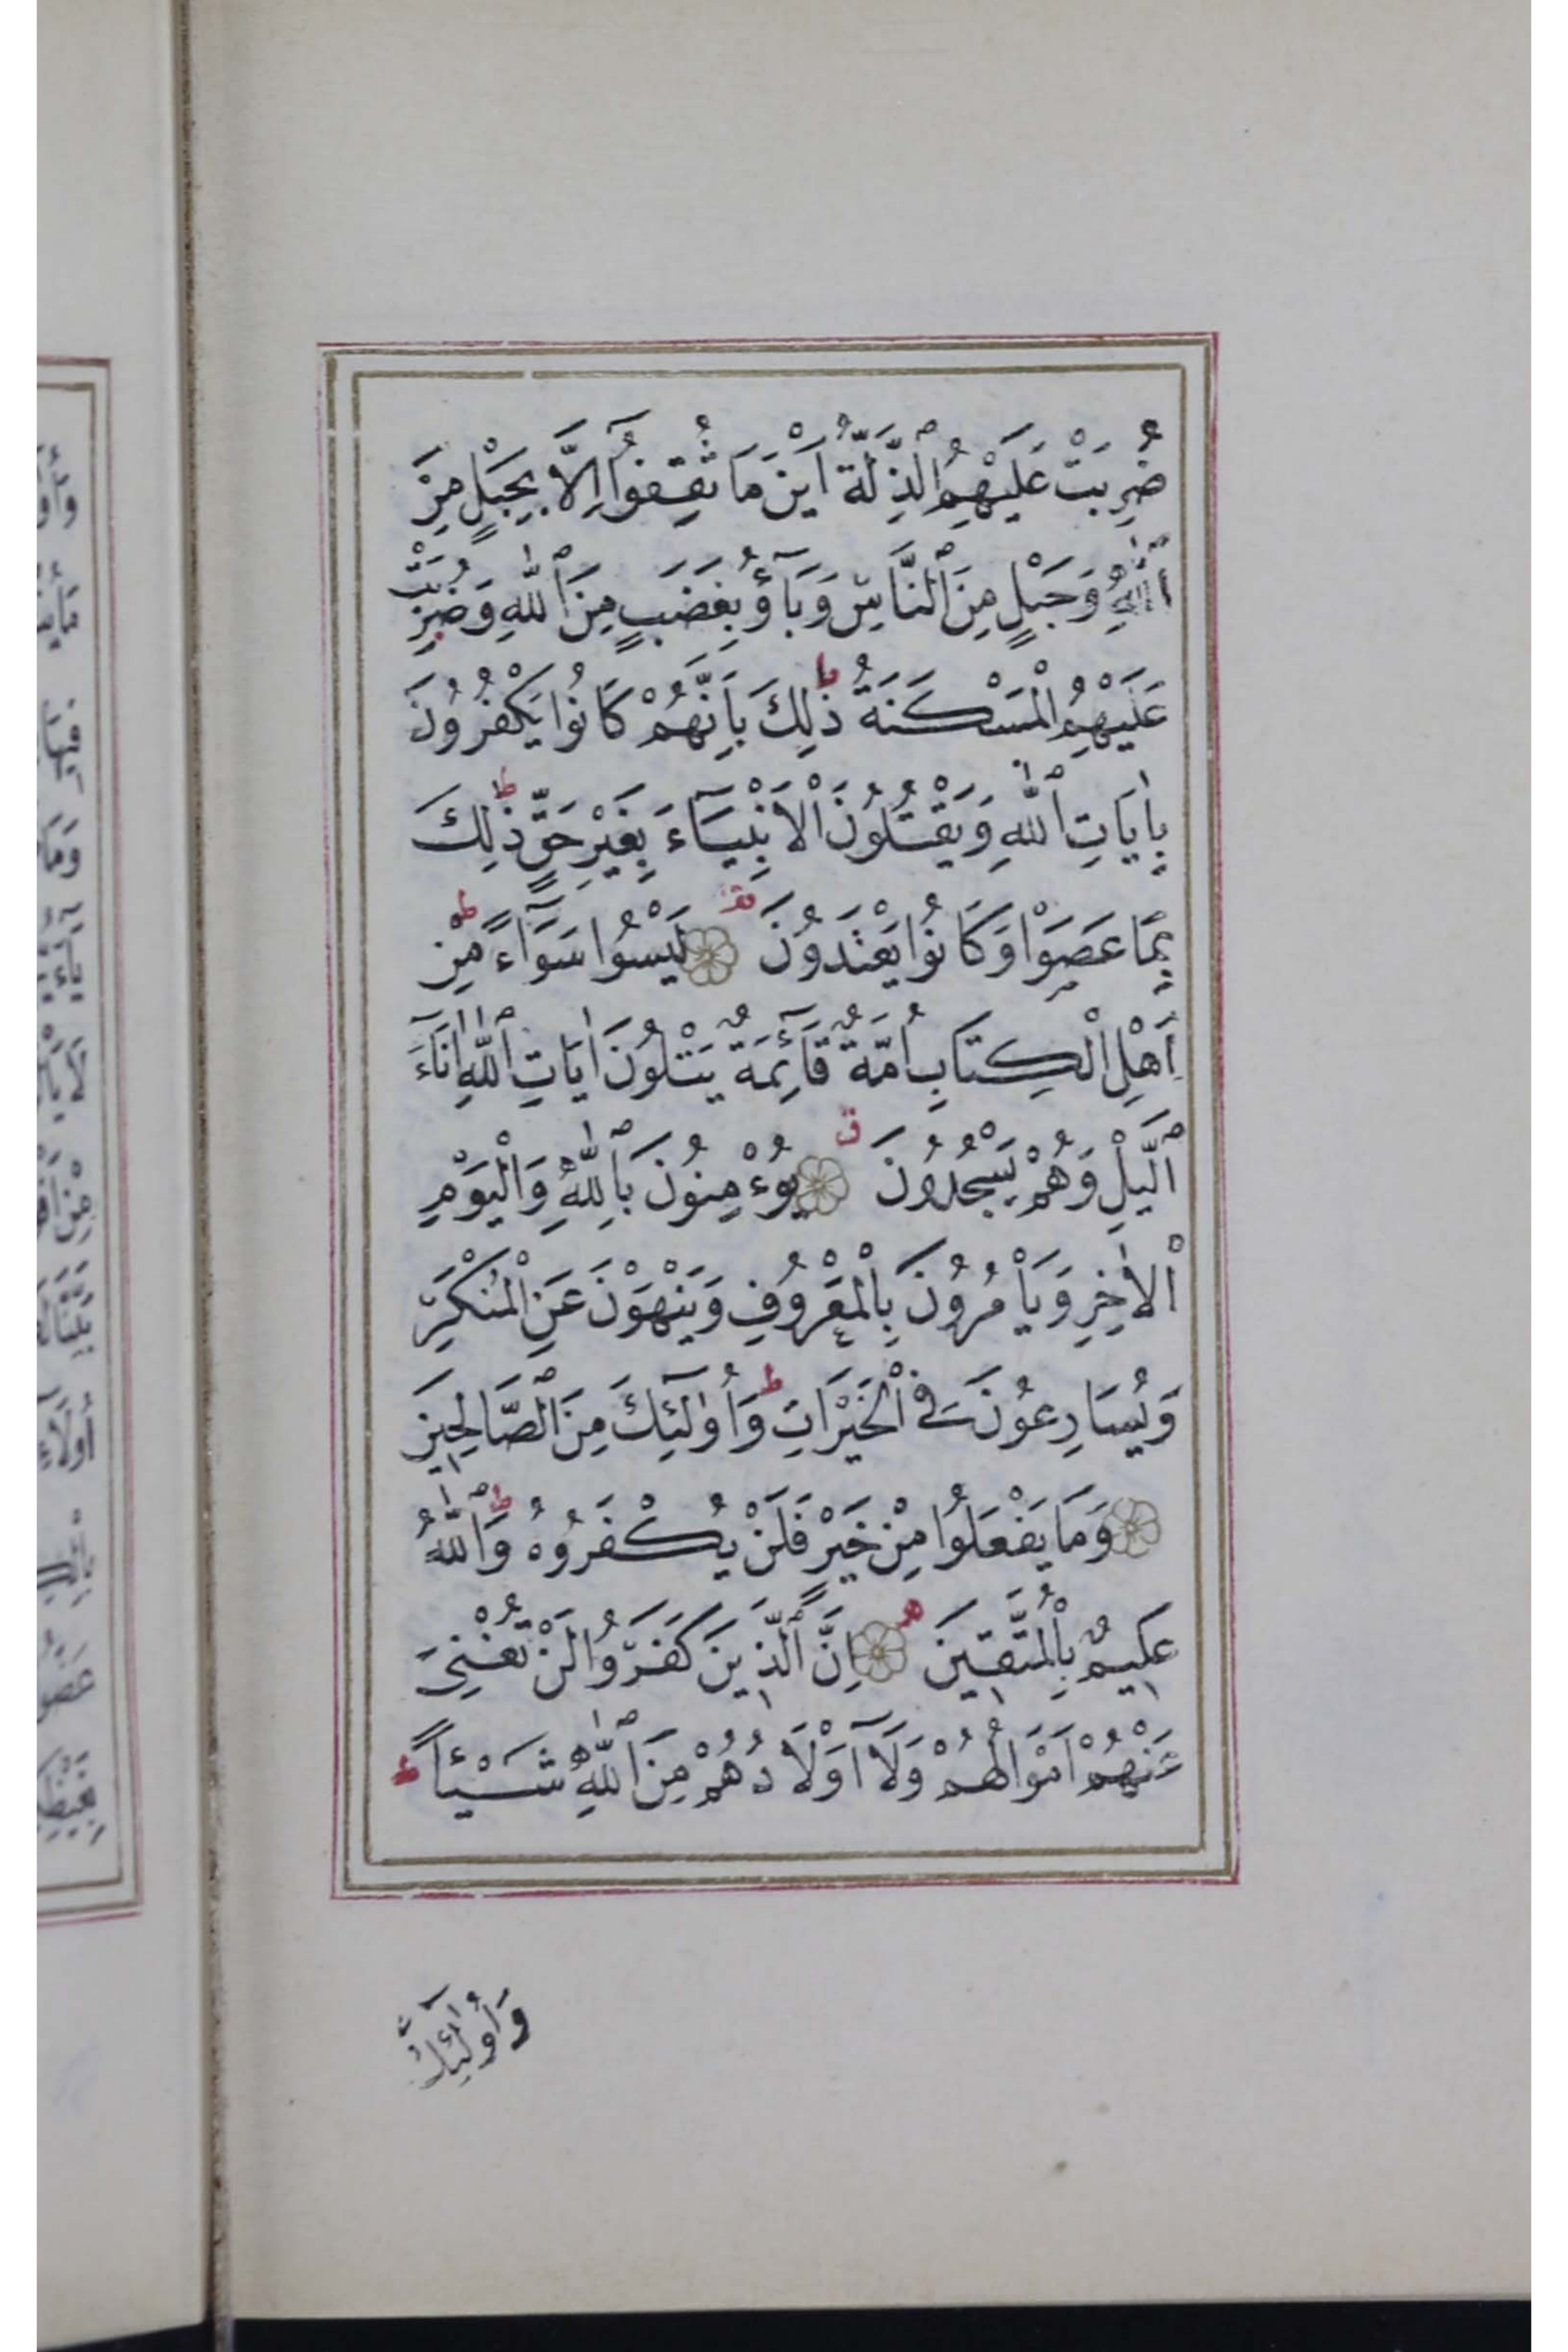 ضُرِبَتْ عَلَيْهِمُ ٱلذِّلَّةُ اَيْنَ مَا ثُقِفُوٓا اِلَّا بِحَبْلٍ مِنَ
ٱللّٰهِ وَحَبْلٍ مِنَ ٱلنَّاسِ وَبَآؤُ بِغَضَبٍ مِنَ ٱللّٰهِ وَضُرِبَتْ
عَلَيْهِمُ الْمَسْكَنَةُ ط ذٰلِكَ بِاَنَّهُمْ كَانُوا يَكْفُرُونَ
بِاٰيَاتِ ٱللّٰهِ وَيَقْتُلُونَ الْاَنْبِيَآءَ بِغَيْرِ حَقٍّ ط ذٰلِكَ
بِمَا عَصَوْا وَكَانُوا يَعْتَدُونَ لَيْسُوا سَوَآءً ط مِنْ
اَهْلِ الْكِتَابِ اُمَّةٌ قَآئِمَةٌ يَتْلُونَ اٰيَاتِ ٱللّٰهِ اٰنَآءَ
ٱلَّيْلِ وَهُمْ يَسْجُدُونَ ق يُوءْمِنُونَ بِٱللّٰهِ وَالْيَوْمِ
الْاٰخِرِ وَيَاْمُرُونَ بِالْمَعْرُوفِ وَيَنْهَوْنَ عَنِ الْمُنْكَرِ
وَيُسَارِعُونَ فِى الْخَيْرَاتِ ط وَاُوٰلٓئِكَ مِنَ ٱلصَّالِحِينَ
وَمَا يَفْعَلُوا مِنْ خَيْرٍ فَلَنْ يُكْفَرُوهُ ط وَٱللّٰهُ
عَلِيمٌ بِالْمُتَّقِينَ اِنَّ ٱلَّذِينَ كَفَرُوا لَنْ تُغْنِىَ
عَنْهُمْ اَمْوَالُهُمْ وَلَآ اَوْلَادُهُمْ مِنَ ٱللّٰهِ شَيْئاً ط
وَاُولٰٓئِكَ